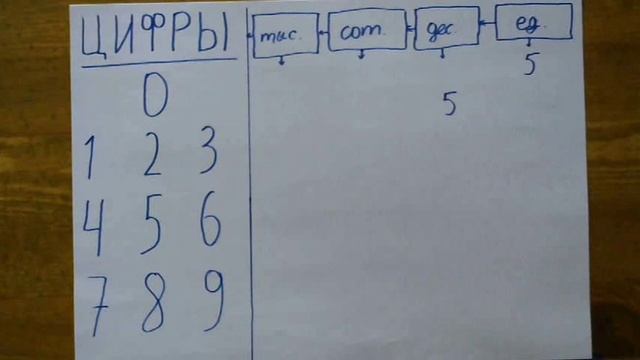 ЦИФРЫ
тыс. сот. дес. ед.
5
0
5
1 2 3
4 5 6
7 8 9